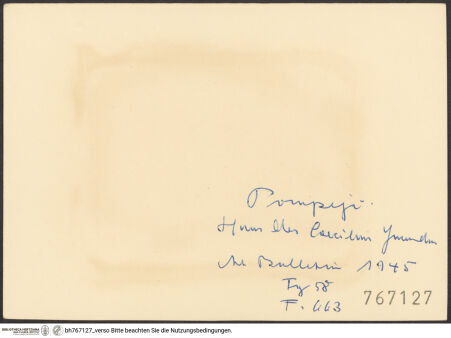 Pompeji.
Haus des Caecilius Jucundus
Art Bulletin 1945
Fg 58
F. 663
767127
BIBLIOTHECA HERTZIANA
bh767127_verso Bitte beachten Sie die Nutzungsbedingungen.